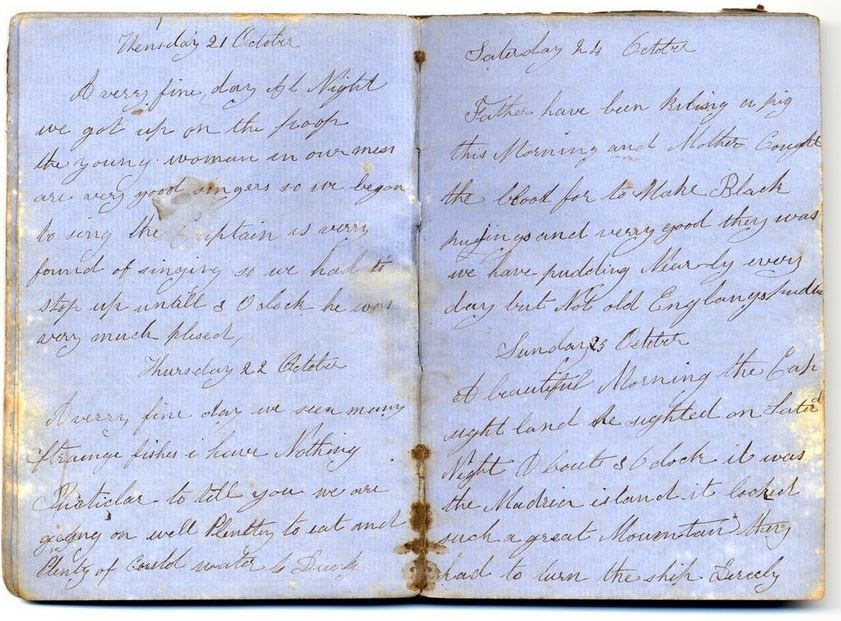 Wensday 21 October
A verry fine day At Night
we got up on the poop
the young woman in our mess
are very good singers so we began
to sing the Captain is verry
found of singing so we had to
stop up untill 8 O clock he was
very much plesed,
Thursday 22 October
A verry fine day we seen many
strainge fishes i have Nothing
Particlar to tell you we are
going on well Plentty to eat and
Plenty of Could water to
Saterday 24 October
Father have been kiling a pig
this Morning and Mother Cought
the blood for to Make Black
pudings and verry good they was
we have pudding Nearly every
day but Not old Englangs
Sunday 25 October
A beautiful Morning the Cap
sight land he sighted on Saterd
Night Abouts 8 O clock it was
the Madrier island it looked
such a great Mountain they
had to turn the ship